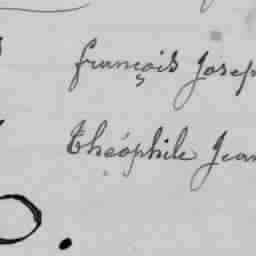 françois Josep
théophile Jean